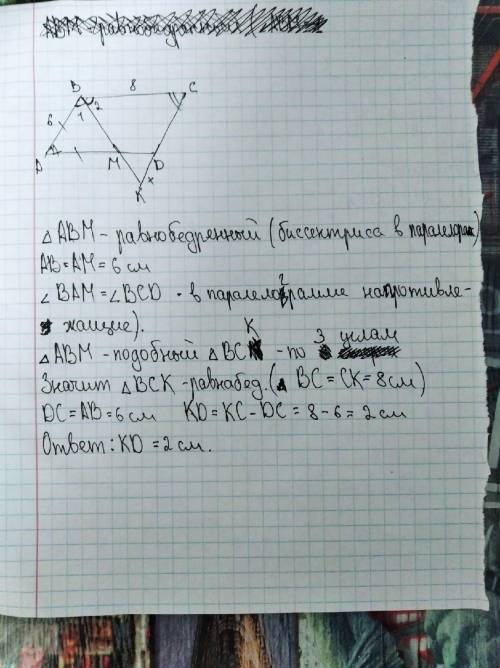 B 8 C
6 1 2
A M D
x
K
△ABM - равнобедренный (биссектриса в паралелограм)
AB=AM=6см
∠BAM=∠BCD - в паралелограмме напротивле-
жащие).
△ABM - подобный △BCK - по 3 углам
Значит △BCK - равнобед. (BC=CK=8см)
DC=AB=6см KD=KC-DC=8-6=2см
Ответ: KD=2см.